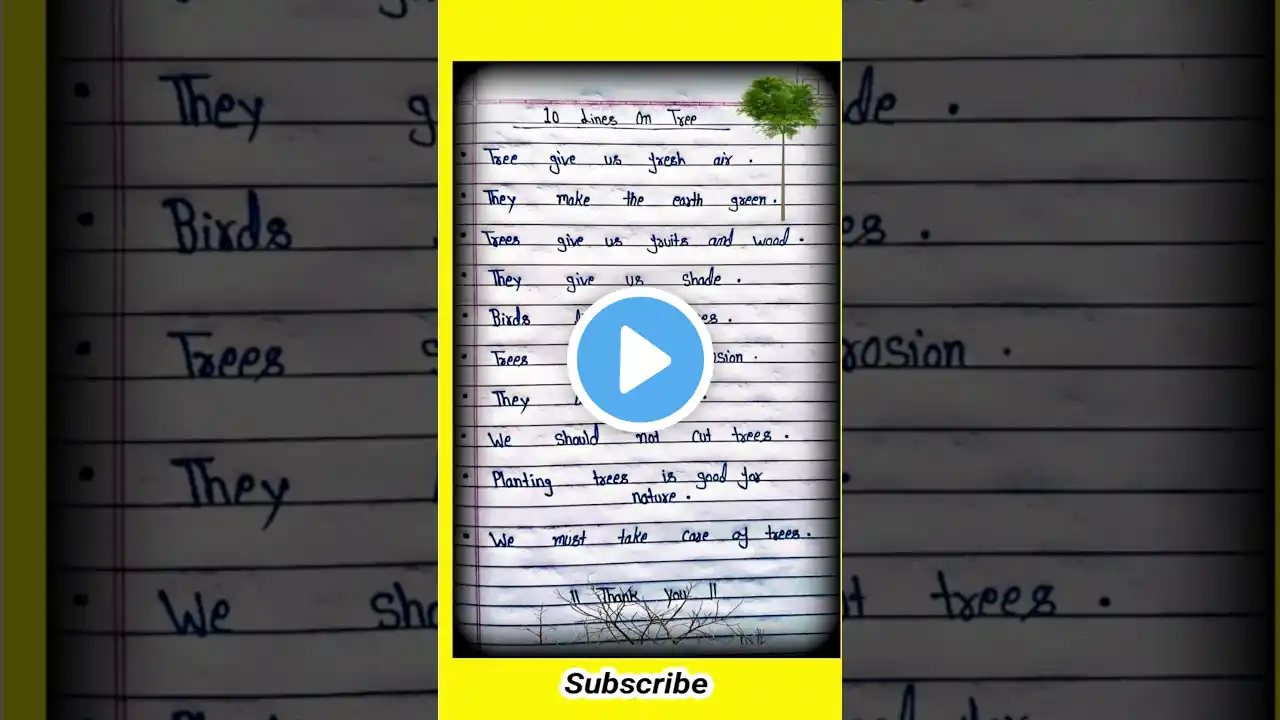 10 Lines On Tree
Tree give us fresh air .
They make the earth green .
Trees give us fruits and wood .
They give us shade .
Birds
Trees
They
We should not cut trees .
Planting trees is good for
nature .
We must take care of trees .
|| Thank You ||
Subscribe
They
Birds
Trees
rosion .
They
We
trees .